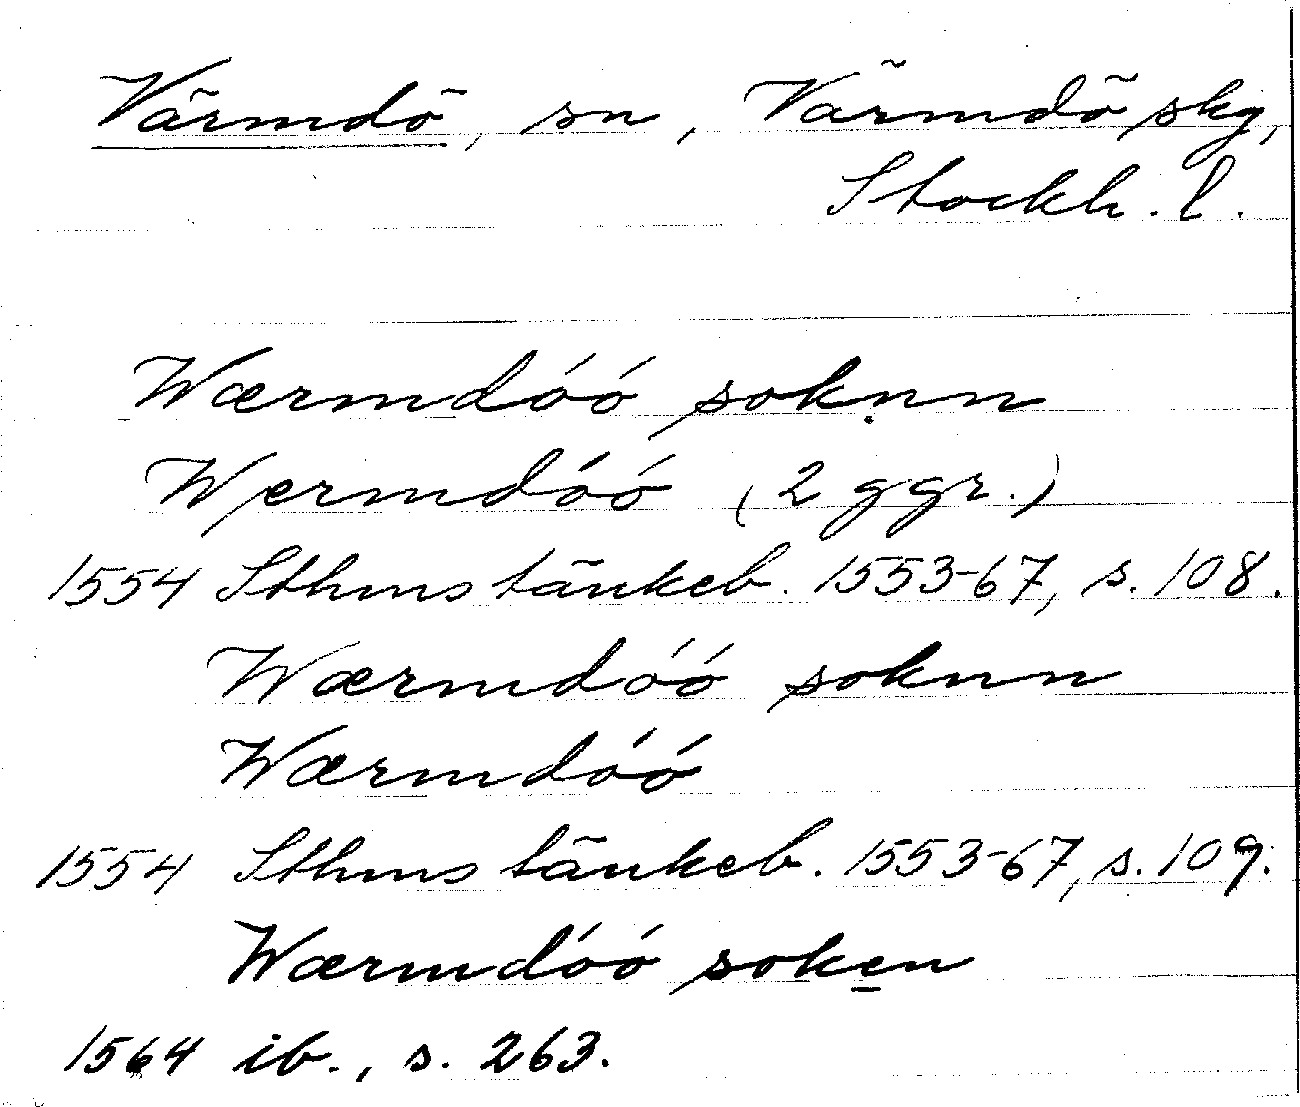 Värmdö, sn, Värmdö skg,
Stockh. l.
Wærmdóó soknn
Wermdóó (2 ggr.)
1554 Sthms tänkeb. 1553-67, s. 108.
Wærmdóó soknn
Wærmdóó
1554 Sthms tänkeb. 1553-67, s. 109.
Wærmdóó soken
1564 ib., s. 263.